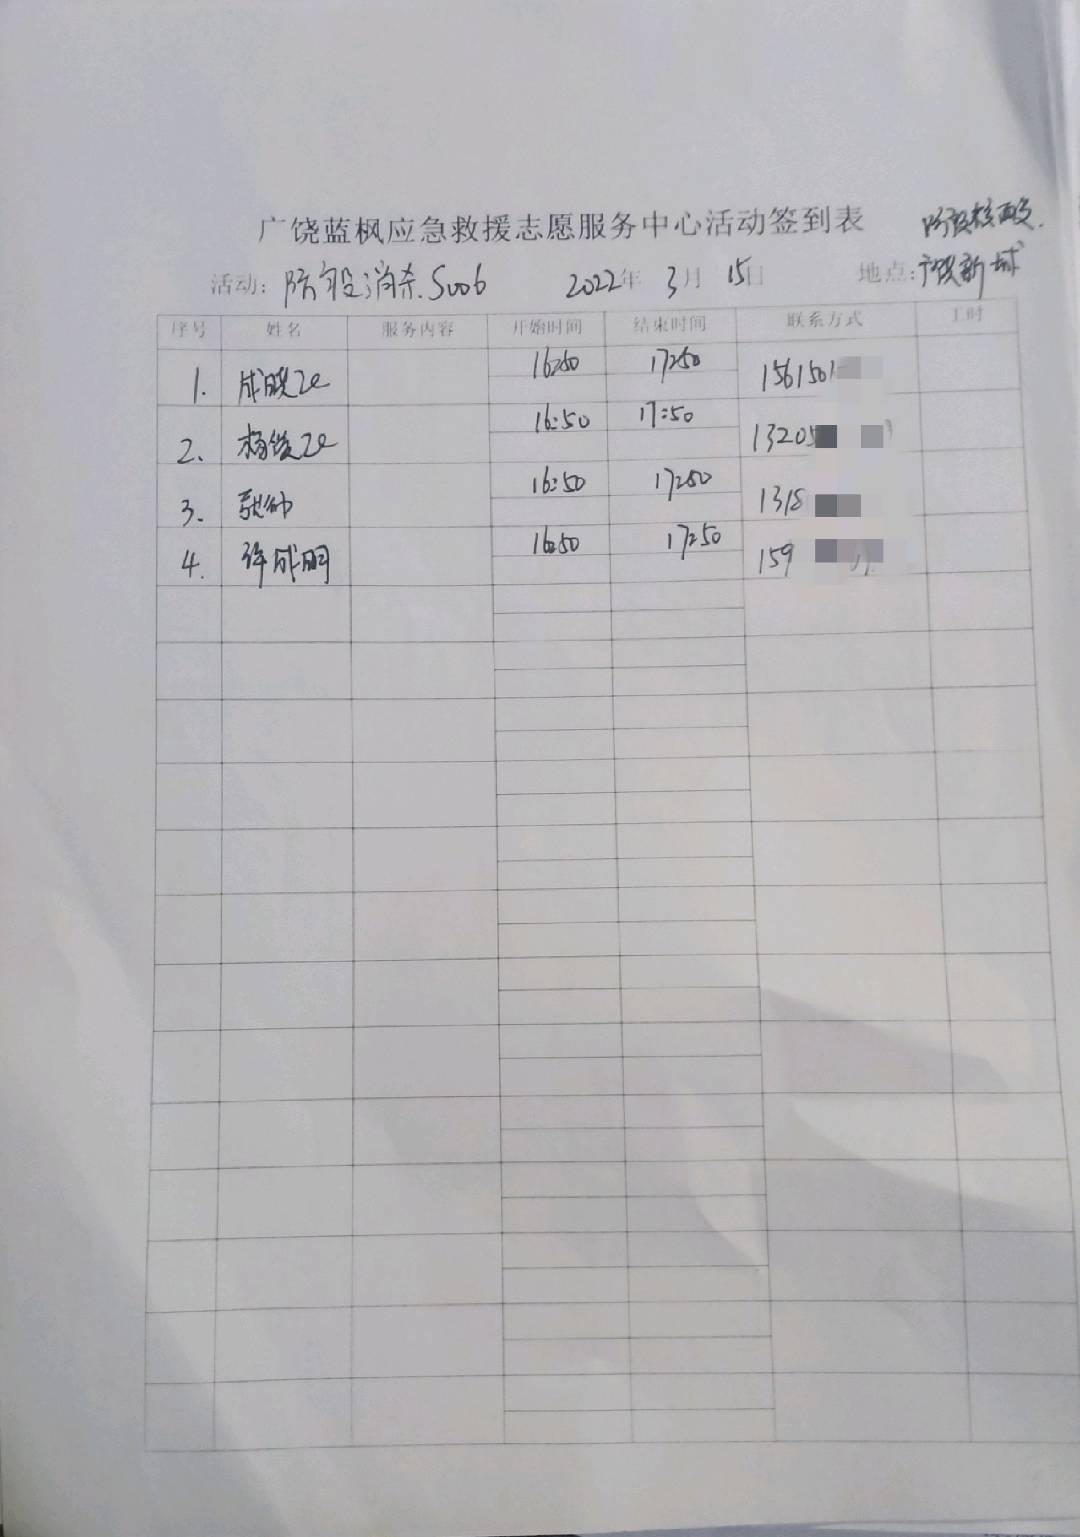 广饶蓝枫应急救援志愿服务中心活动签到表
活动: 防疫消杀.5006 2022年 3月 15日 地点:
序号 姓名 服务内容 开始时间 结束时间 联系方式 工时
1. 成晓 16:50 17:50 156150
2. 杨俊 16:50 17:50 13205
3. 16:50 17:50 1318
4. 许成明 16:50 17:50 159